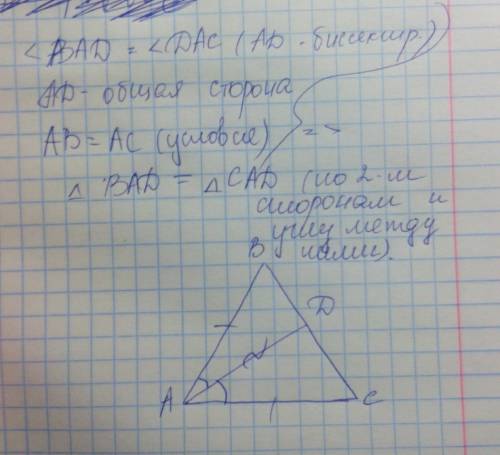 ∠BAD = ∠DAC (AD - биссектр.)
AD - общая сторона
AB = AC (условие) =>
△ BAD = △ CAD (по 2-м
сторонам и
углу между
ними).
B
D
A
C